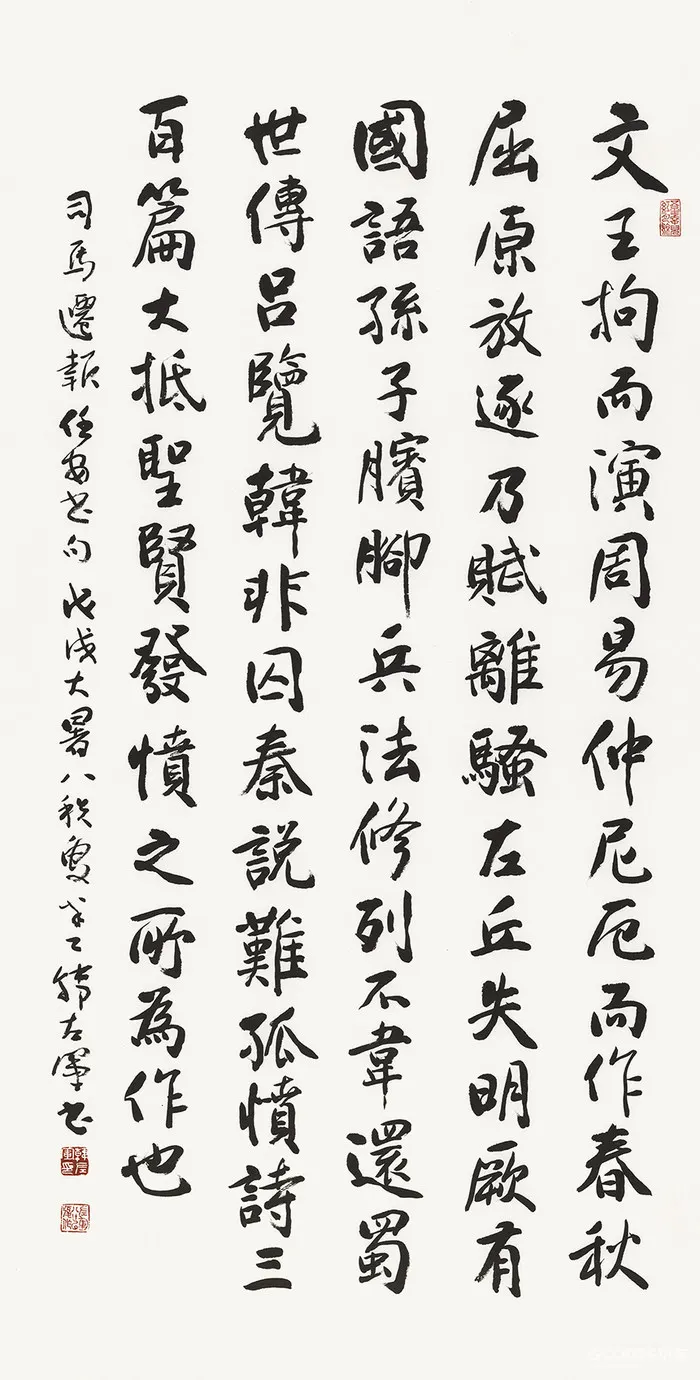 文王拘而演周易仲尼厄而作春秋
屈原放逐乃賦離騷左丘失明厥有
國語孫子臏腳兵法修列不韋還蜀
世傳呂覽韓非囚秦說難孤憤詩三
百篇大抵聖賢發憤之所為作也
司馬遷報任安書句戊戌大暑八秩叟半工韓左軍書